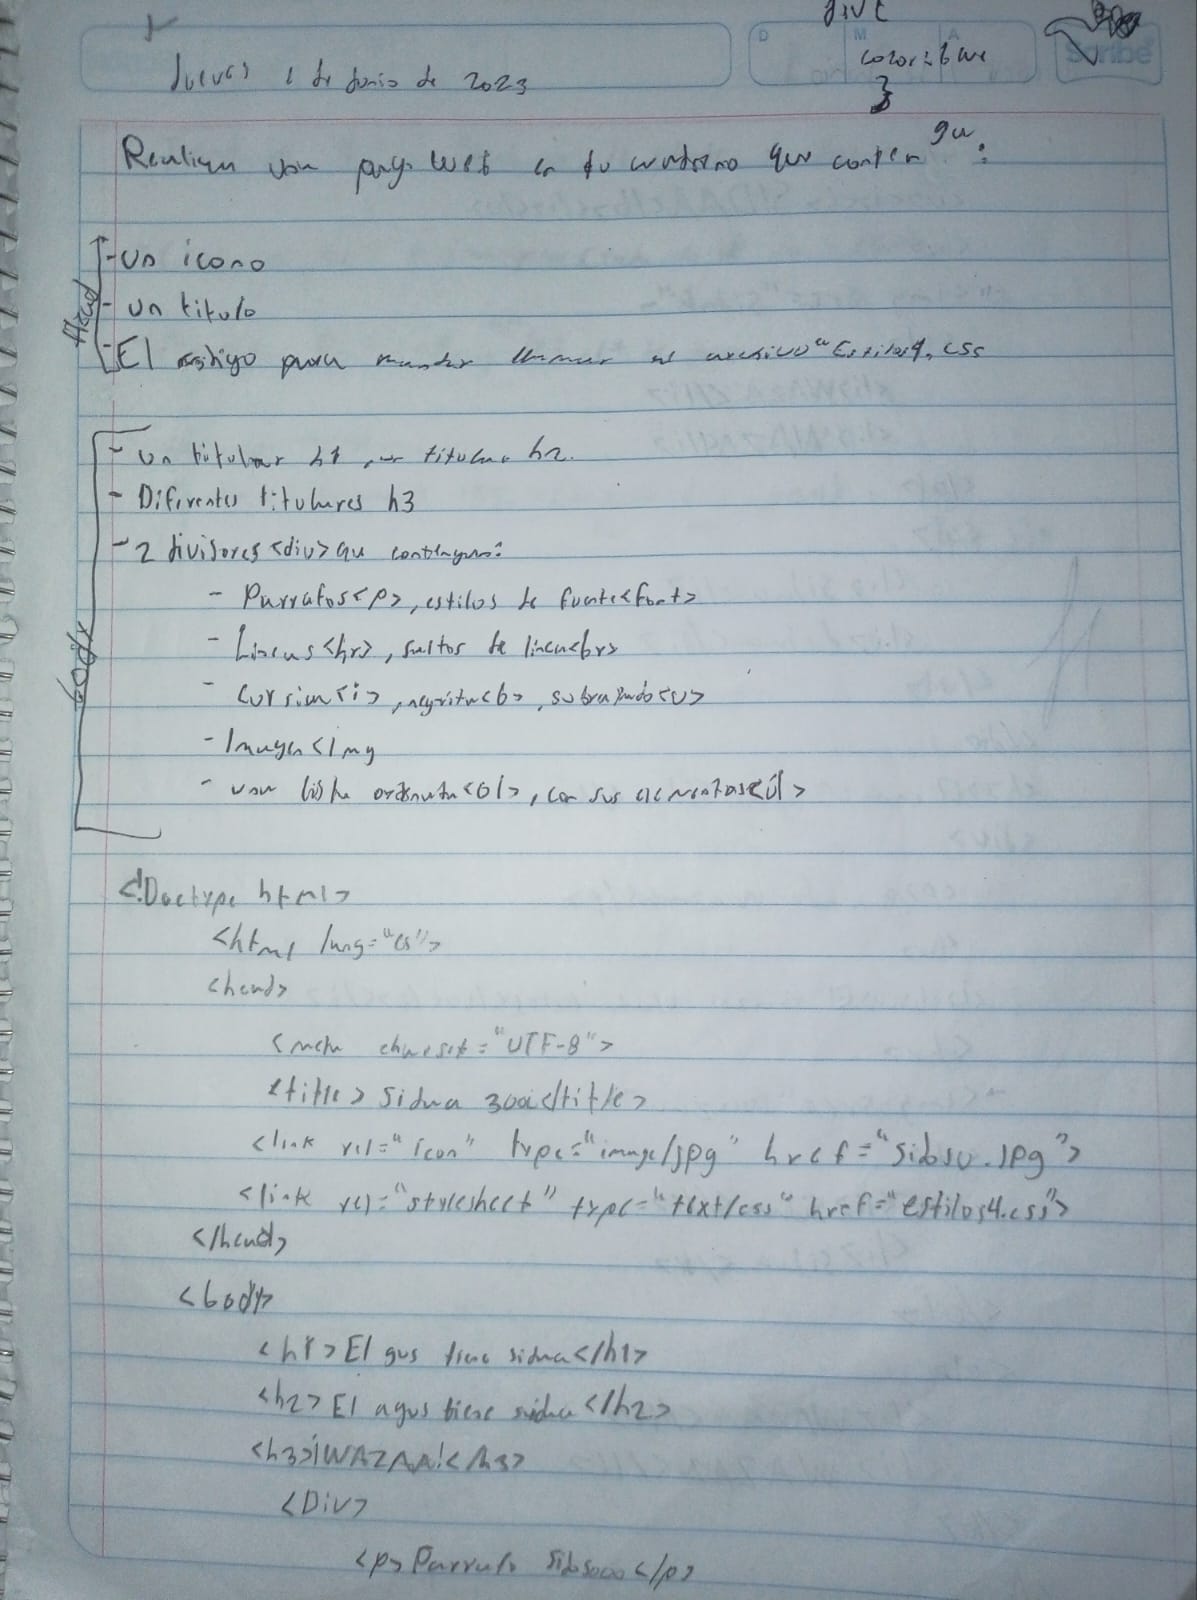 div{
color:blue
}
D M A
Scribe
Jueves 1 de Junio de 2023
Realiza una pag. web en tu cuaderno que contenga:
Head
- Un icono
- Un titulo
- El codigo para mandar llamar al archivo "Estilos4.css
body
- Un titular h1, un titular h2.
- Diferentes titulares h3
- 2 divisores <div> que contengan:
- Parrafos <p>, estilos de fuente <font>
- Lineas <hr>, saltos de linea <br>
- Cursiva <i>, negrita <b>, subrayado <u>
- Imagen <Img
- una lista ordenada <ol>, con sus elementos <li>
<!Doctype html>
<html lang="es">
<head>
<meta charset="UTF-8">
<title> Sidua 300</title>
<link rel="icon" type="image/jpg" href="sidoso.jpg">
<link rel="stylesheet" type="text/css" href="estilos4.css">
</head>
<body>
<h1>El gus tiene sidua</h1>
<h2>El agus tiene sidua</h2>
<h3>¡WAZAA!</h3>
<Div>
<p>Parrafo Sidosooo</p>